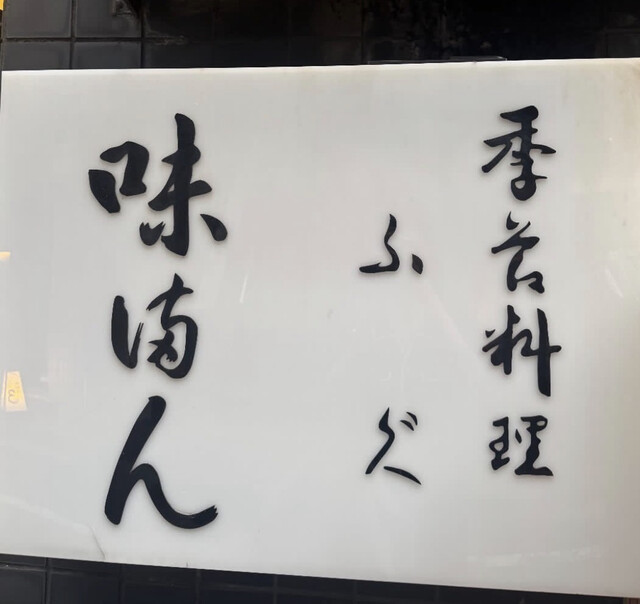 季节料理
ふぐ
味満ん